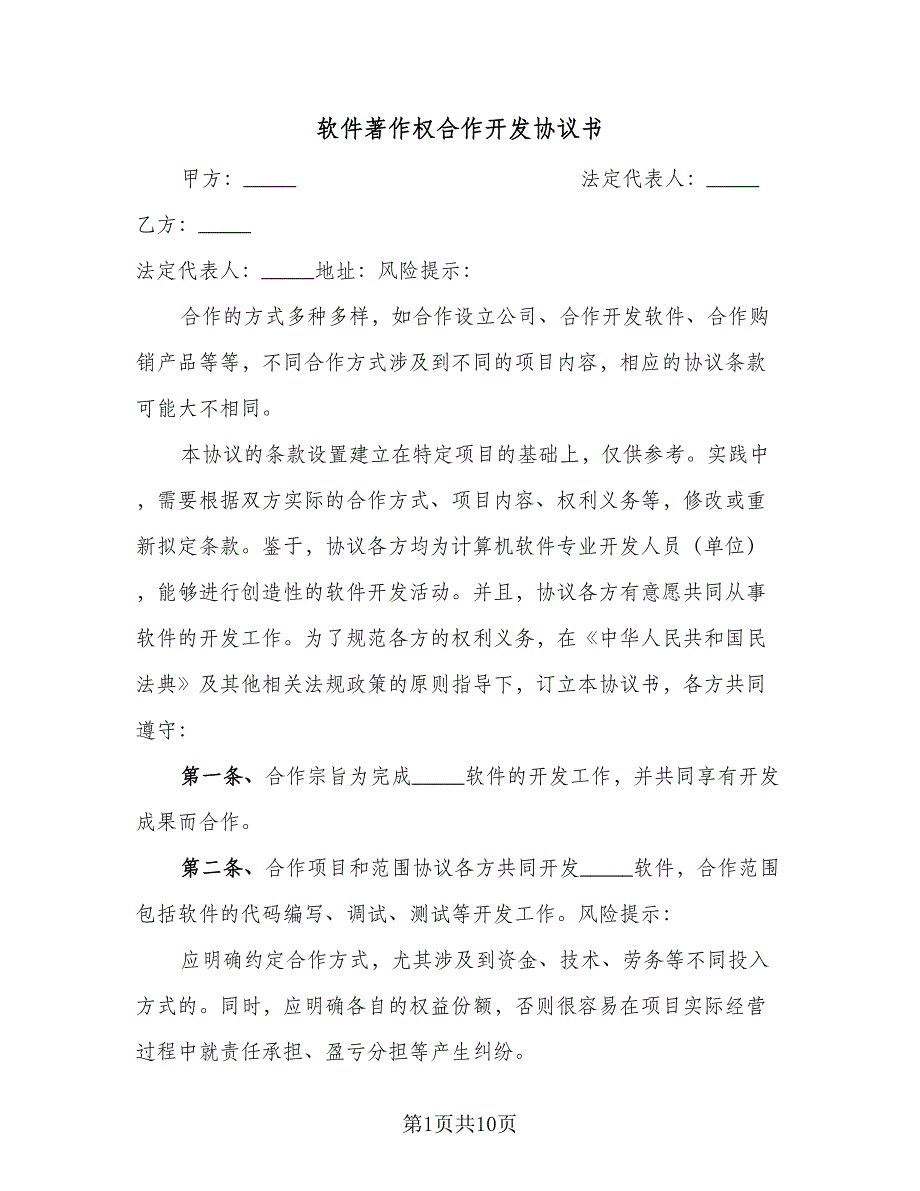 软件著作权合作开发协议书
甲方：_____ 法定代表人：_____
乙方：_____
法定代表人：_____地址：风险提示：
合作的方式多种多样，如合作设立公司、合作开发软件、合作购
销产品等等，不同合作方式涉及到不同的项目内容，相应的协议条款
可能大不相同。
本协议的条款设置建立在特定项目的基础上，仅供参考。实践中
，需要根据双方实际的合作方式、项目内容、权利义务等，修改或重
新拟定条款。鉴于，协议各方均为计算机软件专业开发人员（单位）
，能够进行创造性的软件开发活动。并且，协议各方有意愿共同从事
软件的开发工作。为了规范各方的权利义务，在《中华人民共和国民
法典》及其他相关法规政策的原则指导下，订立本协议书，各方共同
遵守：
第一条、合作宗旨为完成_____软件的开发工作，并共同享有开发
成果而合作。
第二条、合作项目和范围协议各方共同开发_____软件，合作范围
包括软件的代码编写、调试、测试等开发工作。风险提示：
应明确约定合作方式，尤其涉及到资金、技术、劳务等不同投入
方式的。同时，应明确各自的权益份额，否则很容易在项目实际经营
过程中就责任承担、盈亏分担等产生纠纷。
第1页共10页